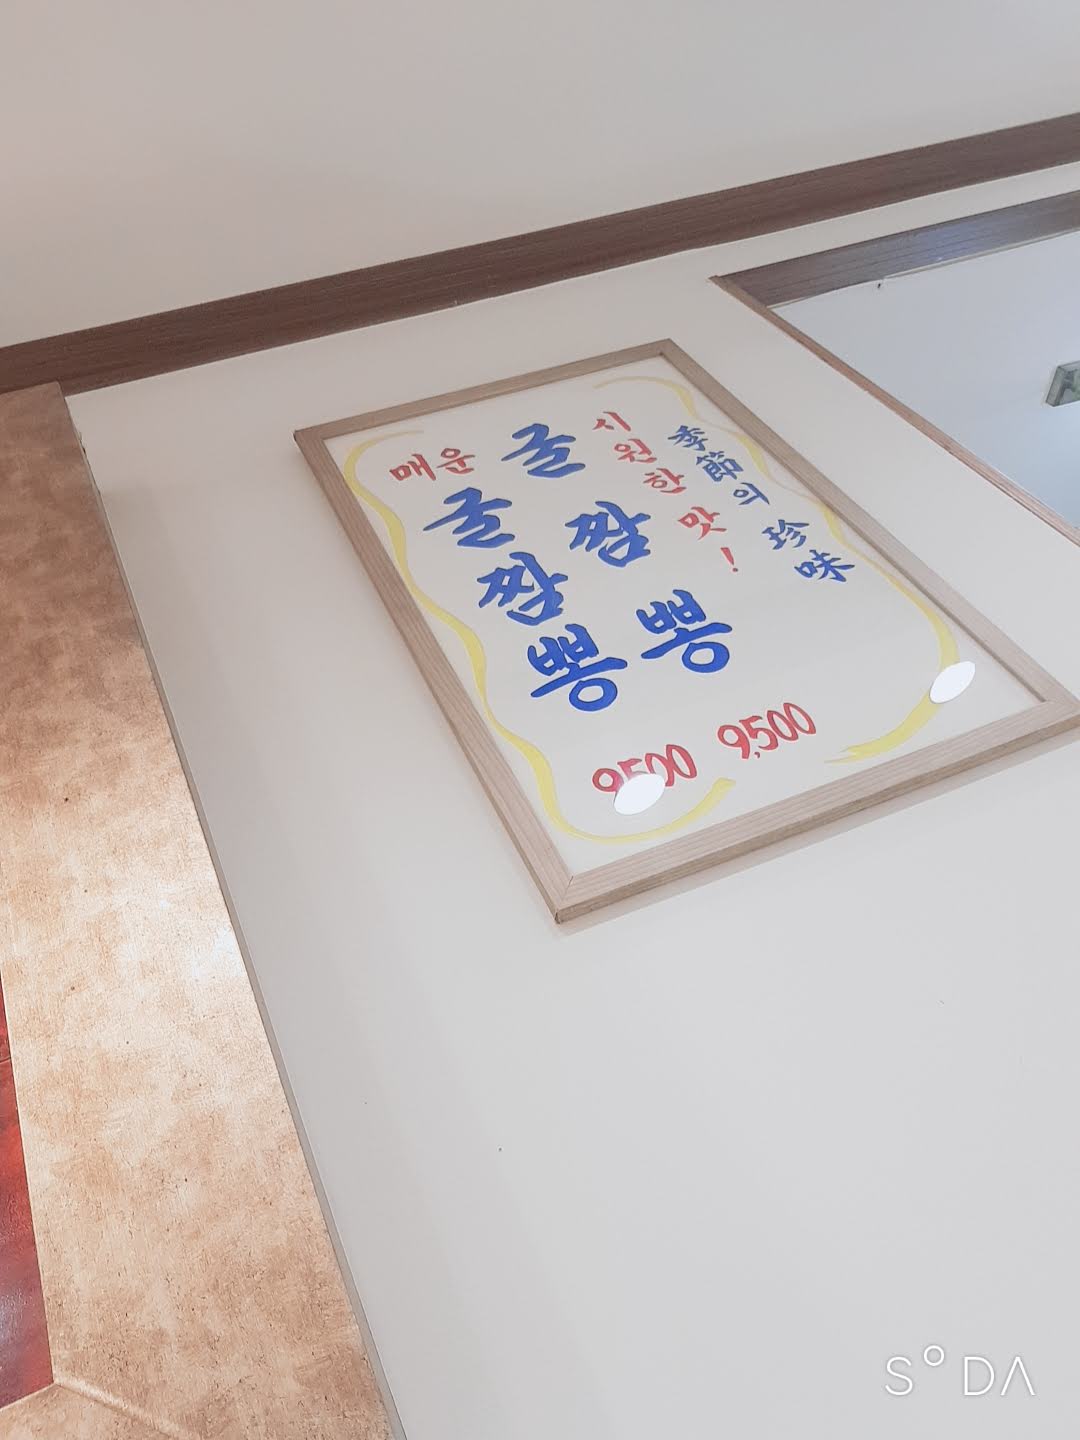 季節의 珍味
시원한 맛!
굴짬뽕
9,500
매운
굴짬뽕
9500
SODA